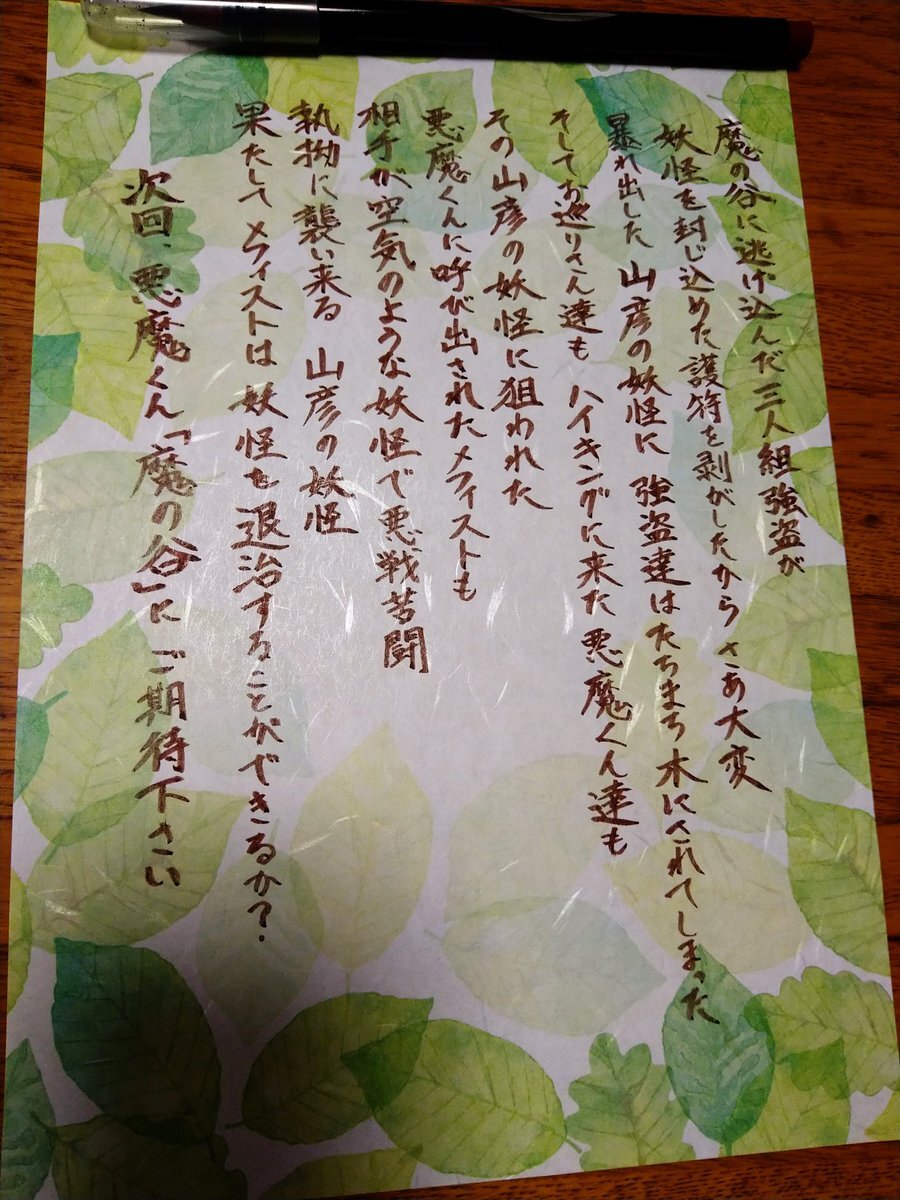 魔の谷に逃げ込んだ三人組強盗が
妖怪を封じ込めた護符を剥がしたから さあ大変
暴れ出した 山彦の妖怪に 強盗達はたちまち木にされてしまった
そしてお巡りさん達も ハイキングに来た悪魔くん達も
その山彦の妖怪に狙われた
悪魔くんに呼び出されたメフィストも
相手が空気のような妖怪で悪戦苦闘
執拗に襲い来る 山彦の妖怪
果たしてメフィストは妖怪を退治することができるか?
次回、悪魔くん「魔の谷」に ご期待下さい